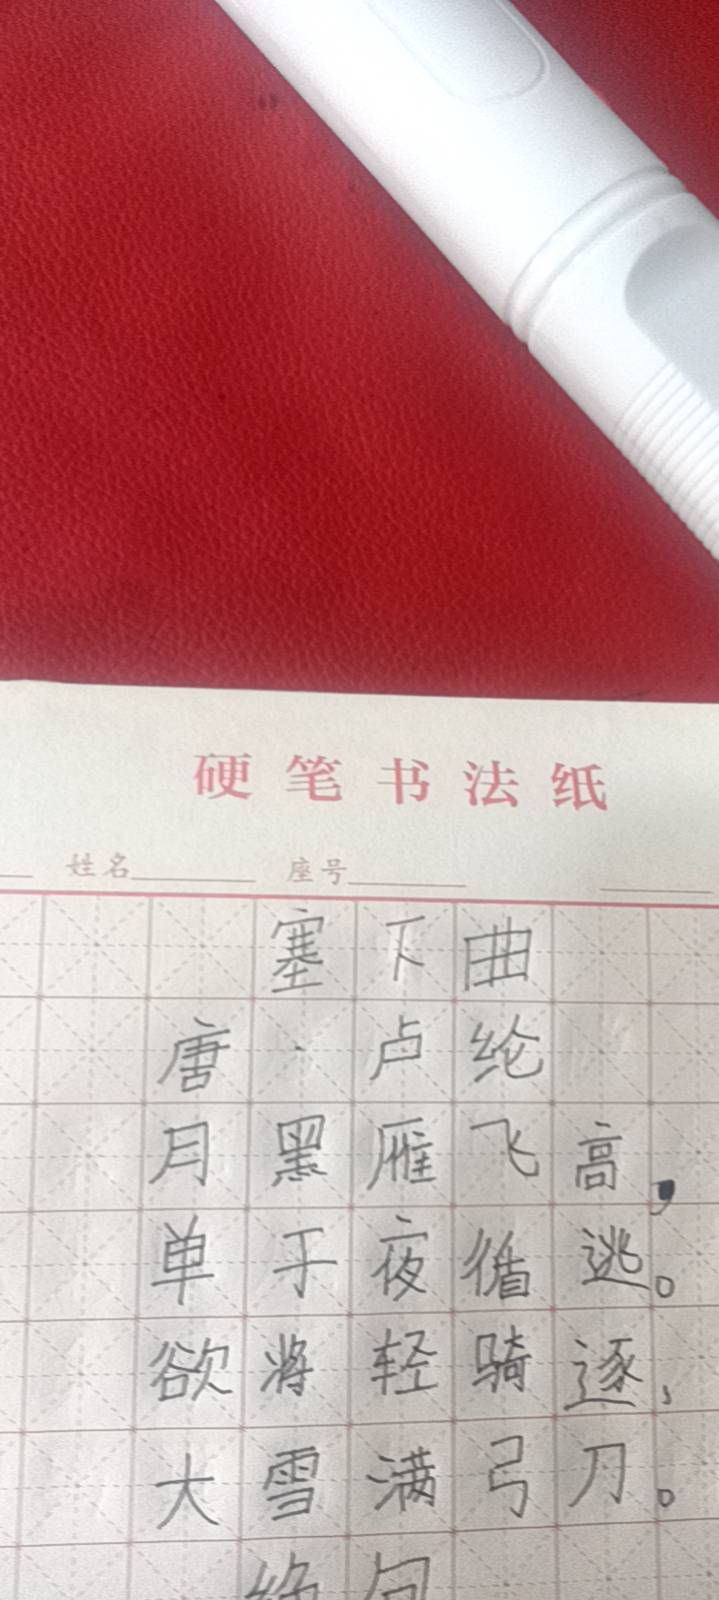 硬笔书法纸
姓名 座号
塞下曲
唐·卢纶
月黑雁飞高，
单于夜循逃。
欲将轻骑逐，
大雪满弓刀。
绝句